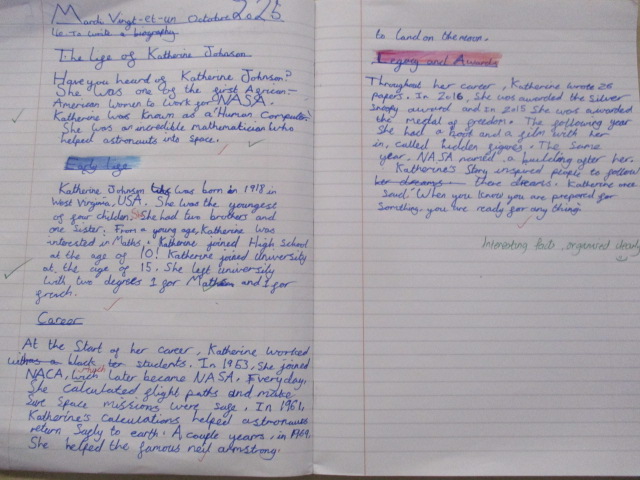 Mardi Vingt-et-un Octobre 2025
Lo- To write a biography
The Life of Katherine Johnson
Have you heard of Katherine Johnson?
She was one of the first African-
American women to work for NASA.
Katherine was known as a Human Computer.
She was an incredible mathematician who
helped astronauts into space.
Early Life
Katherine Johnson was born in 1918 in
West Virginia, USA. She was the youngest
of four children. She had two brothers and
one sister. From a young age, Katherine was
interested in Maths. Katherine joined High School
at the age of 10! Katherine joined university
at the age of 15. She left university
with two degrees 1 for Maths and 1 for
french.
Career
At the Start of her career, Katherine worked
black students. In 1953, She joined
NACA, which later became NASA. Everyday,
She calculated flight paths and make
Sure Space missions were safe. In 1961,
Katherine's calculations helped astronauts
return Safly to earth. A couple years, in 1969,
She helped the famous neil armstrong.
to land on the moon.
Legacy and Awards
Throughout her career, Katherine wrote 26
papers. In 2016, She was awarded the Silver
Snoopy award and in 2015 She was awarded
the medal of freedom. The following year
She had a book and a film with her
in, called hidden figures. The Same
year, NASA named a building after her.
Katherine's Story inspired people to follow
her dreams. there dreams. Katherine once
Said "When you know you are prepared for
Something, you are ready for anything
Interesting facts, organised clearly